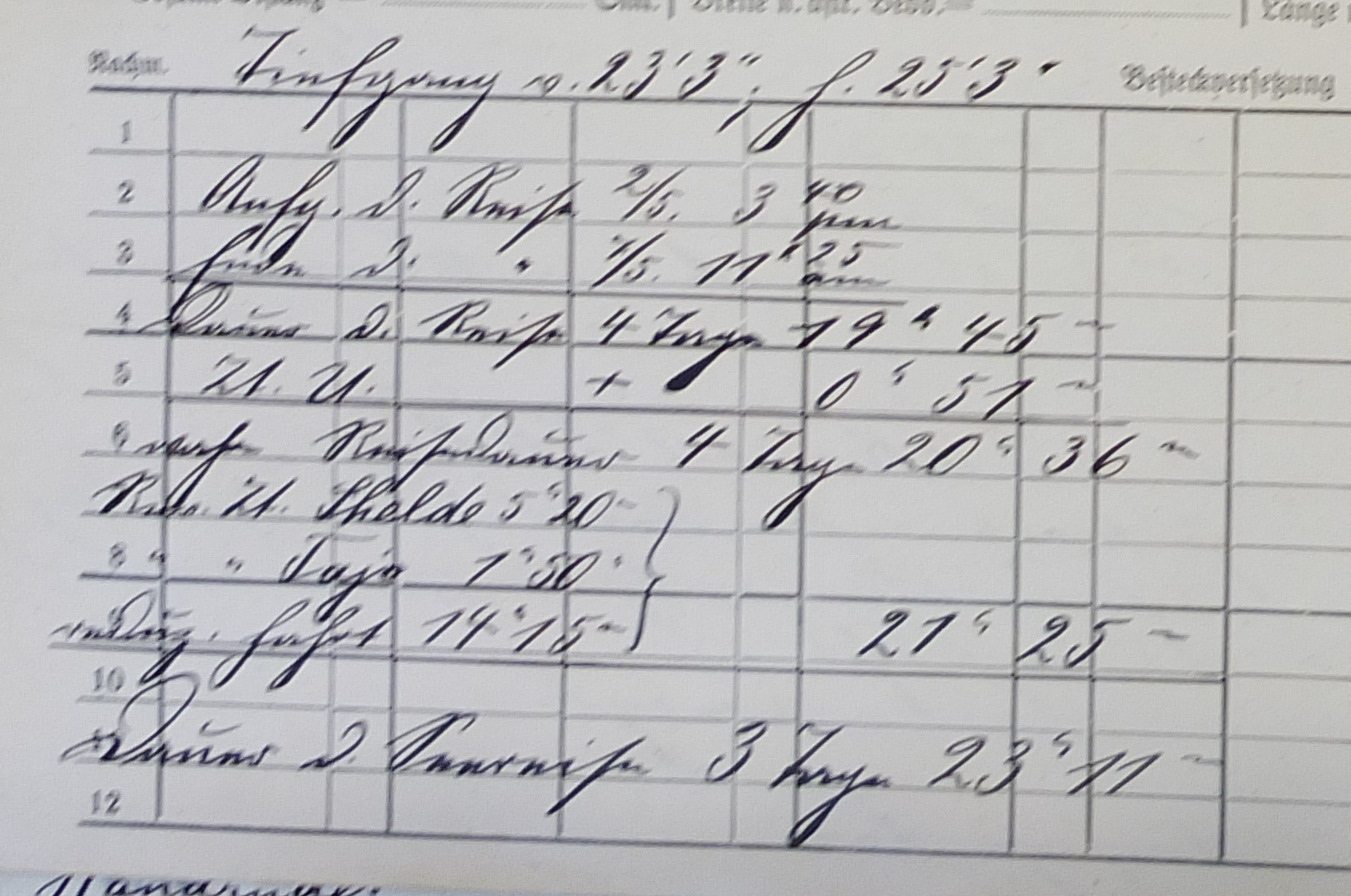 Nachm. Tiefgang v. 23'3"; h. 25'3" Besteckversetzung
1
2 Anfg. d. Reise 2/5. 3 40 pm
3 Ende d. " 7/5. 11 h 25 am
4 Dauer d. Reise 4 Tage 19 h 45 m
5 Z. U. + 0 h 51 m
6 wahre Reisedauer 4 Tage 20 h 36 m
Rev. Z. Schelde 5 h 20 m
8 " " Tajo 1 h 50 m
reduz. Fahrt 14 h 15 m 21 h 25 m
10
Dauer d. Seereise 3 Tage 23 h 11 m
12